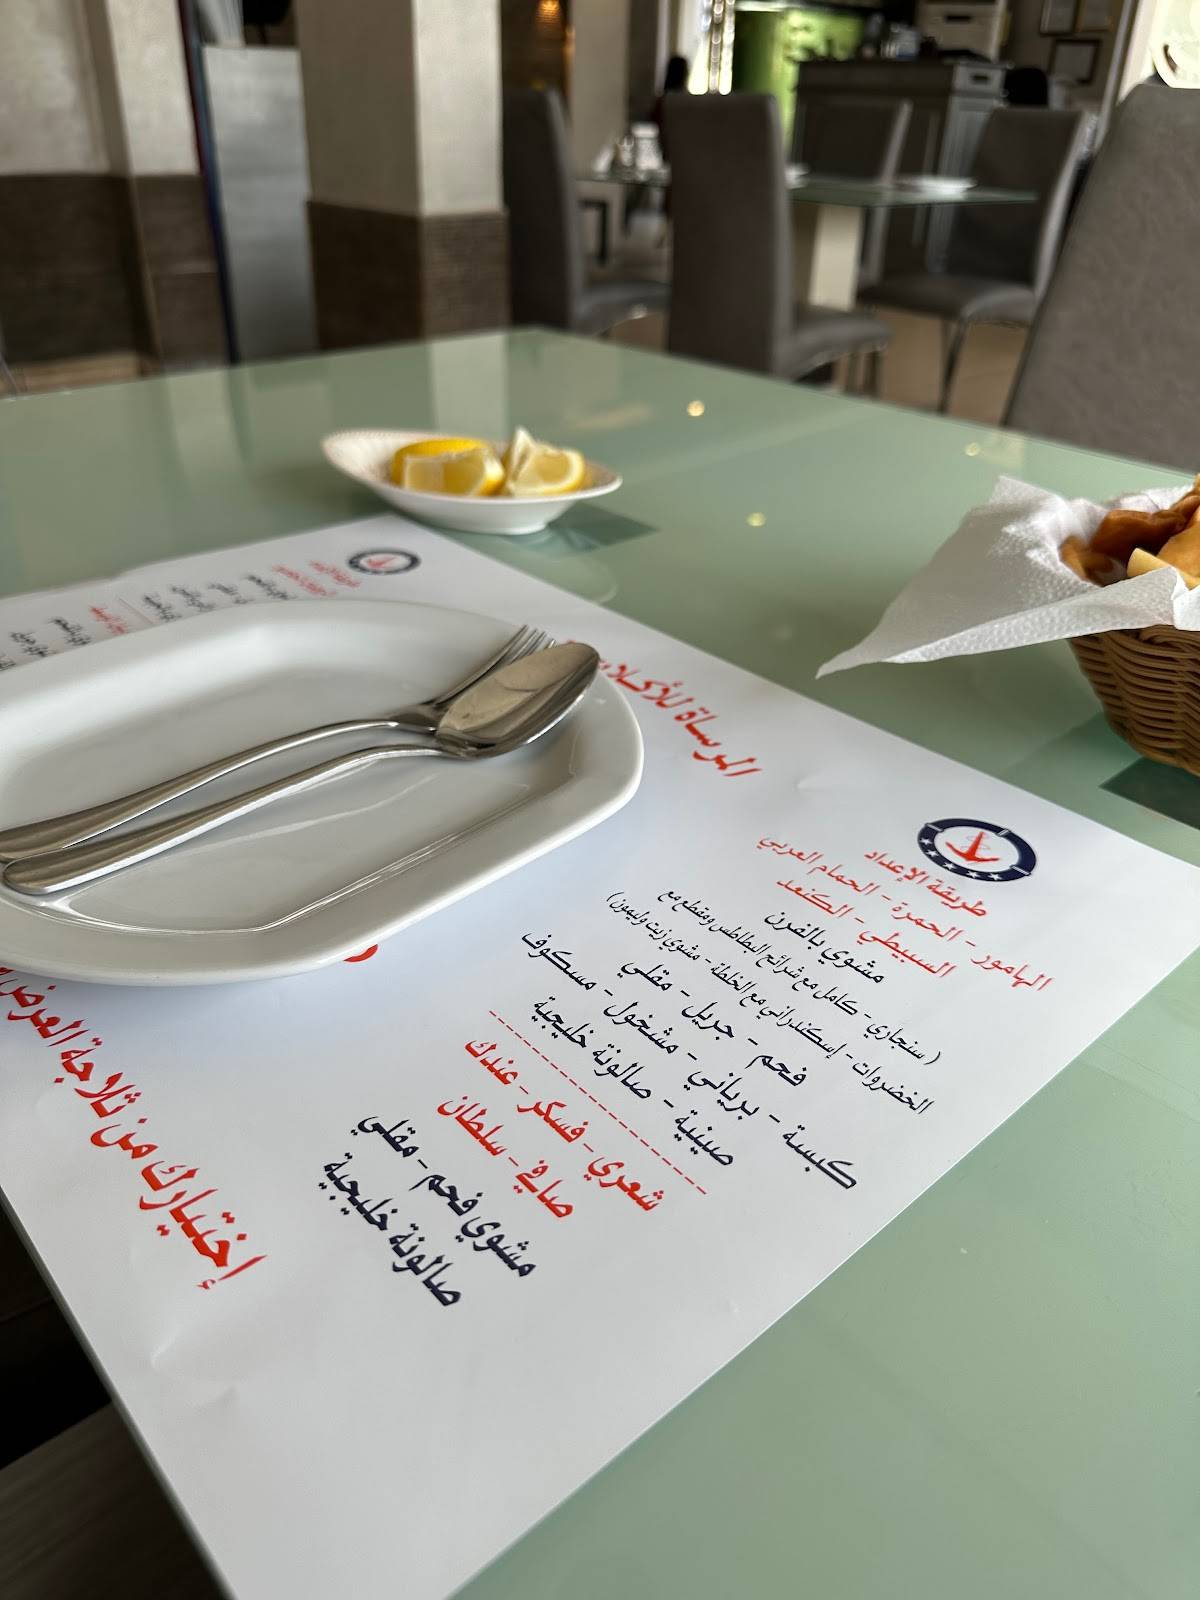 المرساة للأكلات
طريقة الإعداد
الهامور - الحمرة - الحمام العربي
السبيطي - الكنعد
مشوي بالفرن
( سنجاري - كامل مع شرائح البطاطس ومقطع مع
الخضروات - إسكندراني مع الخلطة - مشوي زيت وليمون )
فحم - جريل - مقلي
كبسة - برياني - مشخول - مسكوف
صينية - صالونة خليجية
شعري - فسكر - عندك
صافي - سلطان
مشوي فحم - مقلي
صالونة خليجية
إختيارك من ثلاجة العرض